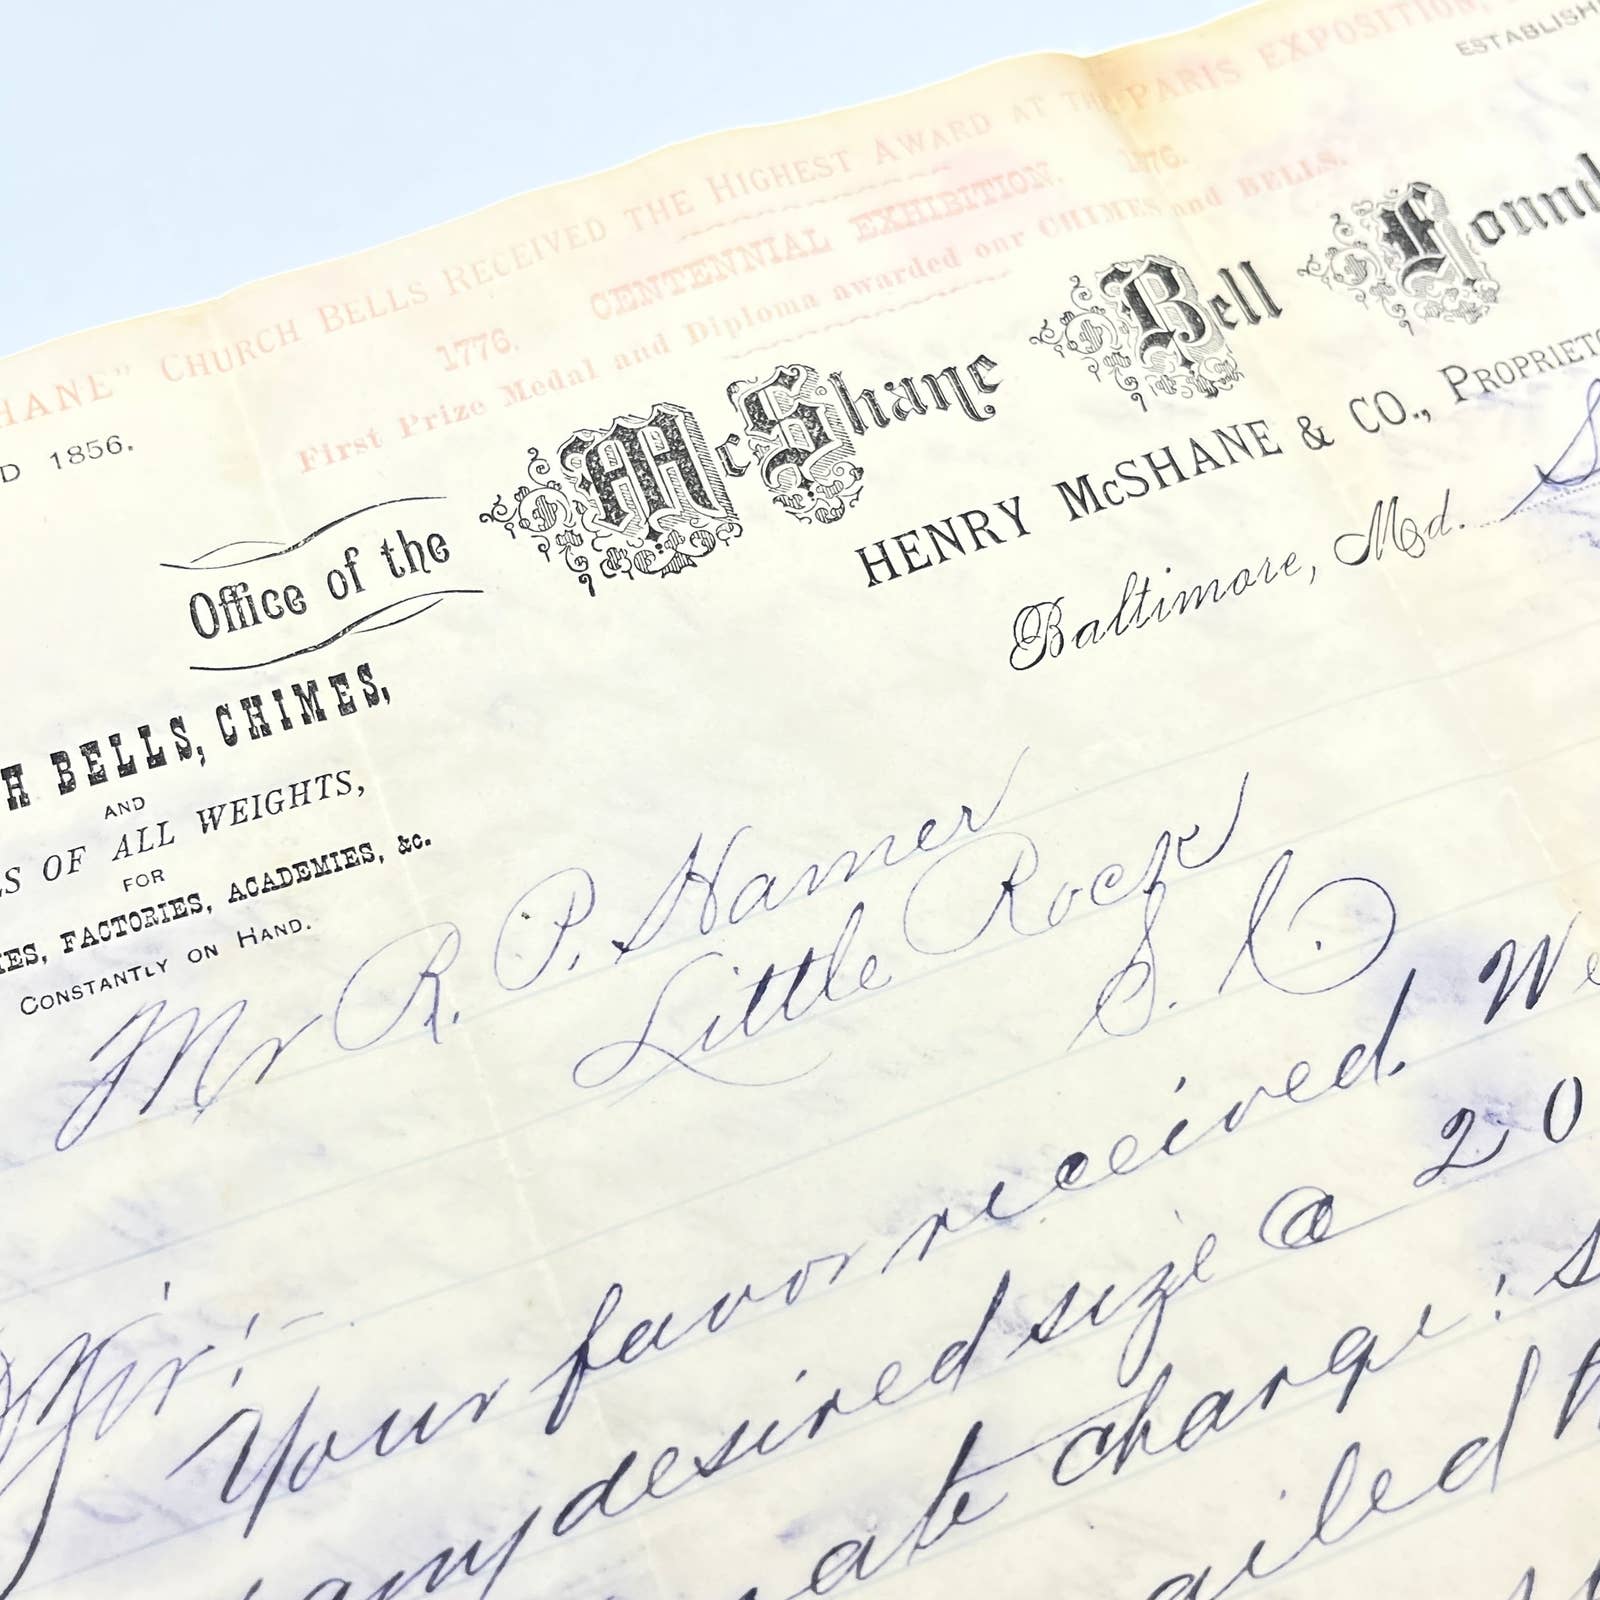 HANE" CHURCH BELLS RECEIVED THE HIGHEST AWARD AT THE PARIS EXPOSITION,
1776. CENTENNIAL EXHIBITION. 1876.
First Prize Medal and Diploma awarded our CHIMES and BELLS.
D 1856.
ESTABLISH
Office of the McShane Bell Found
HENRY McSHANE & CO., PROPRIETO
Baltimore, Md. S
H BELLS, CHIMES,
AND
LS OF ALL WEIGHTS,
FOR
IES, FACTORIES, ACADEMIES, &c.
CONSTANTLY ON HAND.
Mr R. P. Hamer
Little Rock
S. C.
Sir:-
Your favor received. We
any desired size @ 20
at charge: s
ailed